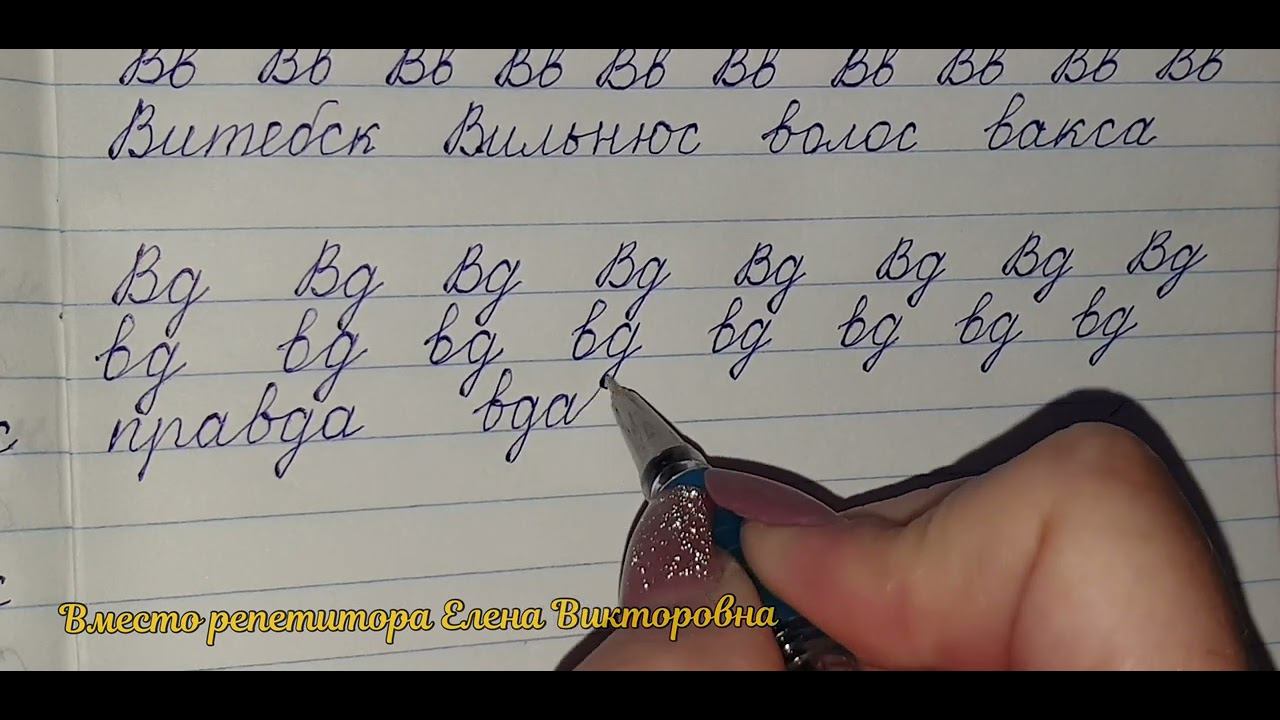 Вв Вв Вв Вв Вв Вв Вв Вв Вв Вв
Витебск Вильнюс волос вакса
Вд Вд Вд Вд Вд Вд Вд Вд
вд вд вд вд вд вд вд вд
правда вда
с
с
Вместо репетитора Елена Викторовна